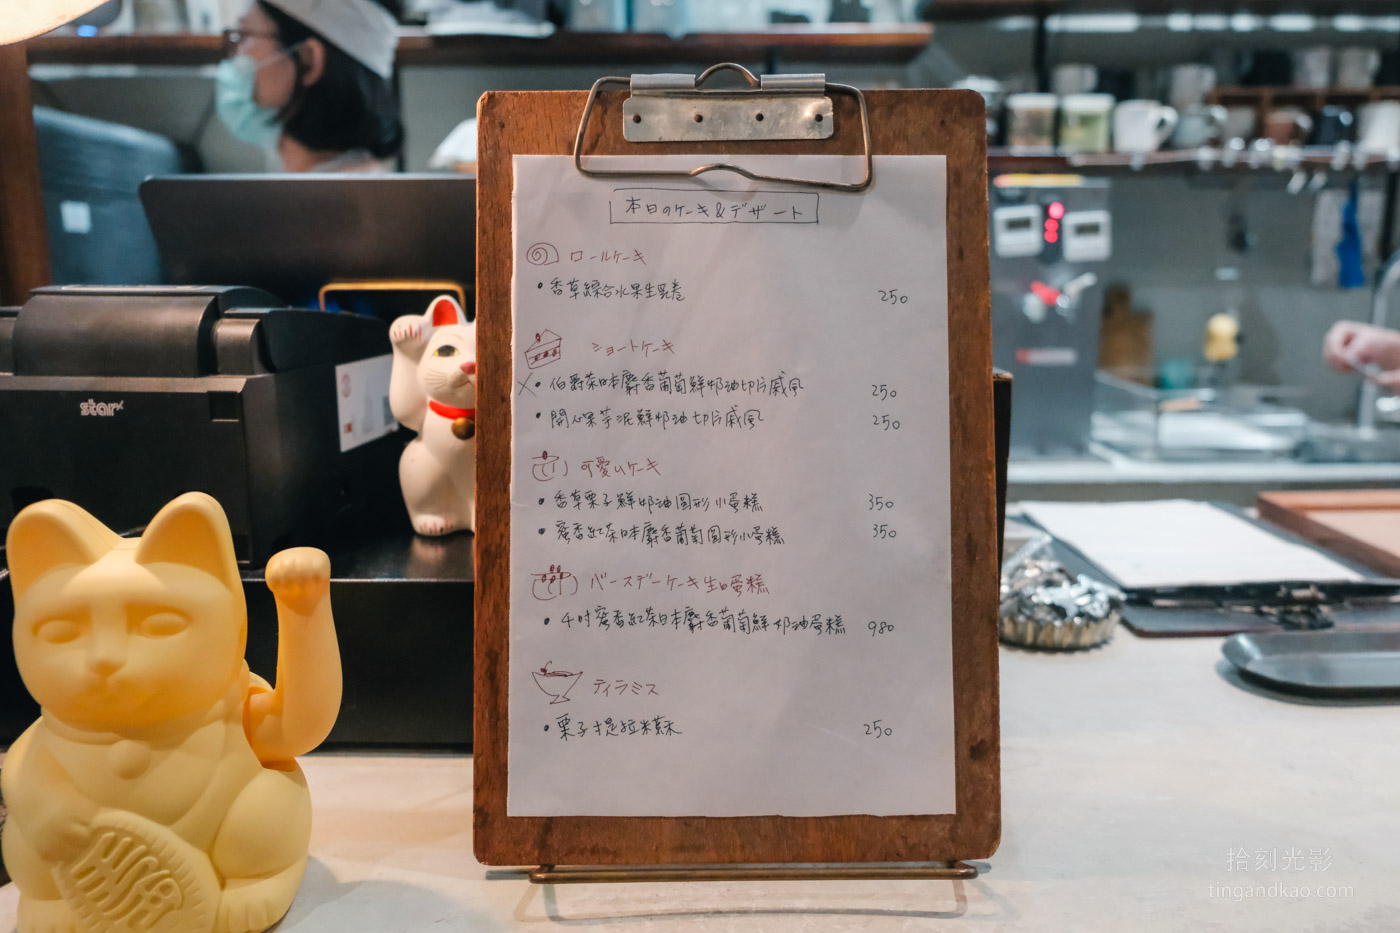 本日のケーキ&デザート
ロールケーキ
•香草綜合水果生乳卷 250
ショートケーキ
X•伯爵茶日本麝香葡萄鮮奶油切片戚風 250
•開心果芋泥鮮奶油切片戚風 250
可愛いケーキ
•香草栗子鮮奶油圓形小蛋糕 350
•蜜香紅茶日本麝香葡萄圓形小蛋糕 350
バースデーケーキ 生日蛋糕
•4吋蜜香紅茶日本麝香葡萄鮮奶油蛋糕 980
ティラミス
•栗子提拉米蘇 250
star
拾刻光影
tingandkao.com